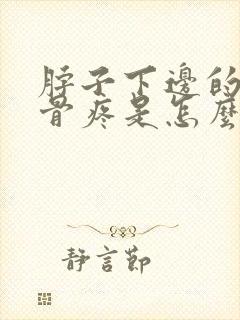 脖子下邊的
骨疼是怎麼
靜言節